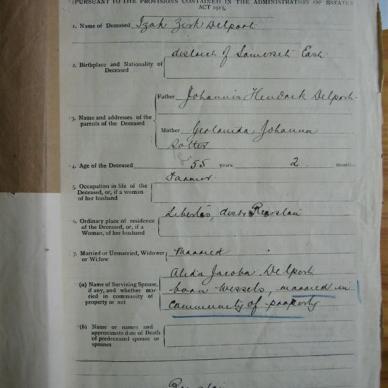 PURSUANT TO THE PROVISIONS CONTAINED IN THE ADMINISTRATION OF ESTATES
ACT 1913.
1. Name of Deceased Izak Delport
2. Birthplace and Nationality of Deceased
district of Somerset East
3. Names and addresses of the parents of the Deceased
Father Johannis Hendrik Delport
Mother Johanna
4. Age of the Deceased 55 years 2 months
5. Occupation in life of the Deceased, or, if a woman of her husband
Farmer
6. Ordinary place of residence of the Deceased, or, if a Woman, of her husband
Libertas,
7. Married or Unmarried, Widower or Widow
Married
(a) Name of Surviving Spouse, if any, and whether married in community of property or not
Alida Jacoba Delport
born Wessels, married in
community of property
(b) Name or names and approximate date of Death of predeceased spouse or spouses